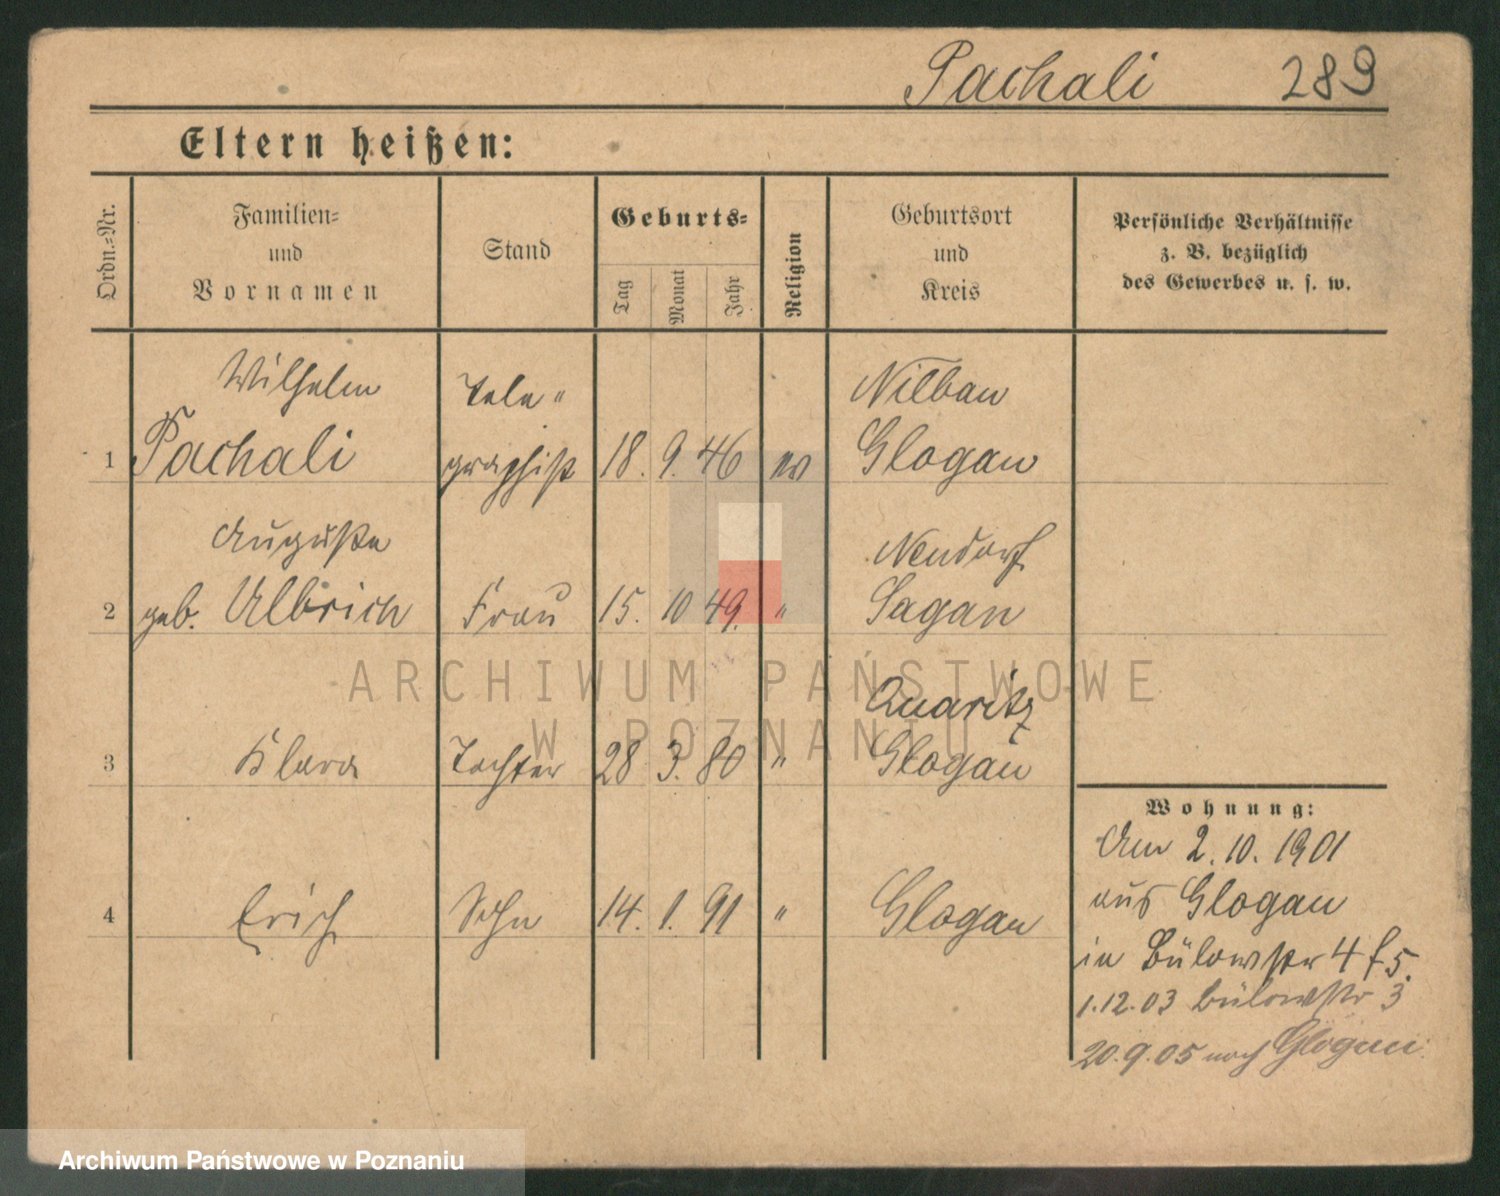 Pachali 289
Eltern heißen:
Ordn.-Nr.
Familien-
und
Vornamen
Stand
Geburts-
Tag
Monat
Jahr
Religion
Geburtsort
und
Kreis
Persönliche Verhältnisse
z. B. bezüglich
des Gewerbes u. s. w.
Wilhelm Tele- Nilbau
1 Pachali graphist 18. 9. 46 ev Glogau
Auguste Neudorf
2 geb. Ulbrich Frau 15. 10 49. " Sagan
ARCHIWUM PAŃSTWOWE
W POZNANIU
Quaritz
3 Klara Tochter 28 3. 80 " Glogau
4 Erich Sohn 14. 1. 91 " Glogau
Wohnung:
Am 2. 10. 1901
aus Glogau
in Bülowstr 4 f 5.
1.12.03 Bülowstr 3
20.9.05 nach Glogau
Archiwum Państwowe w Poznaniu